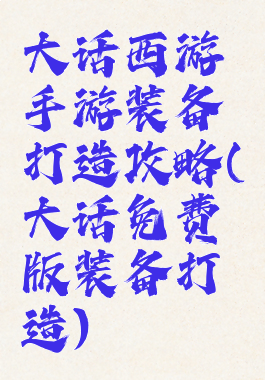 大话西游
手游装备
打造攻略(
大话免费
版装备打
造)